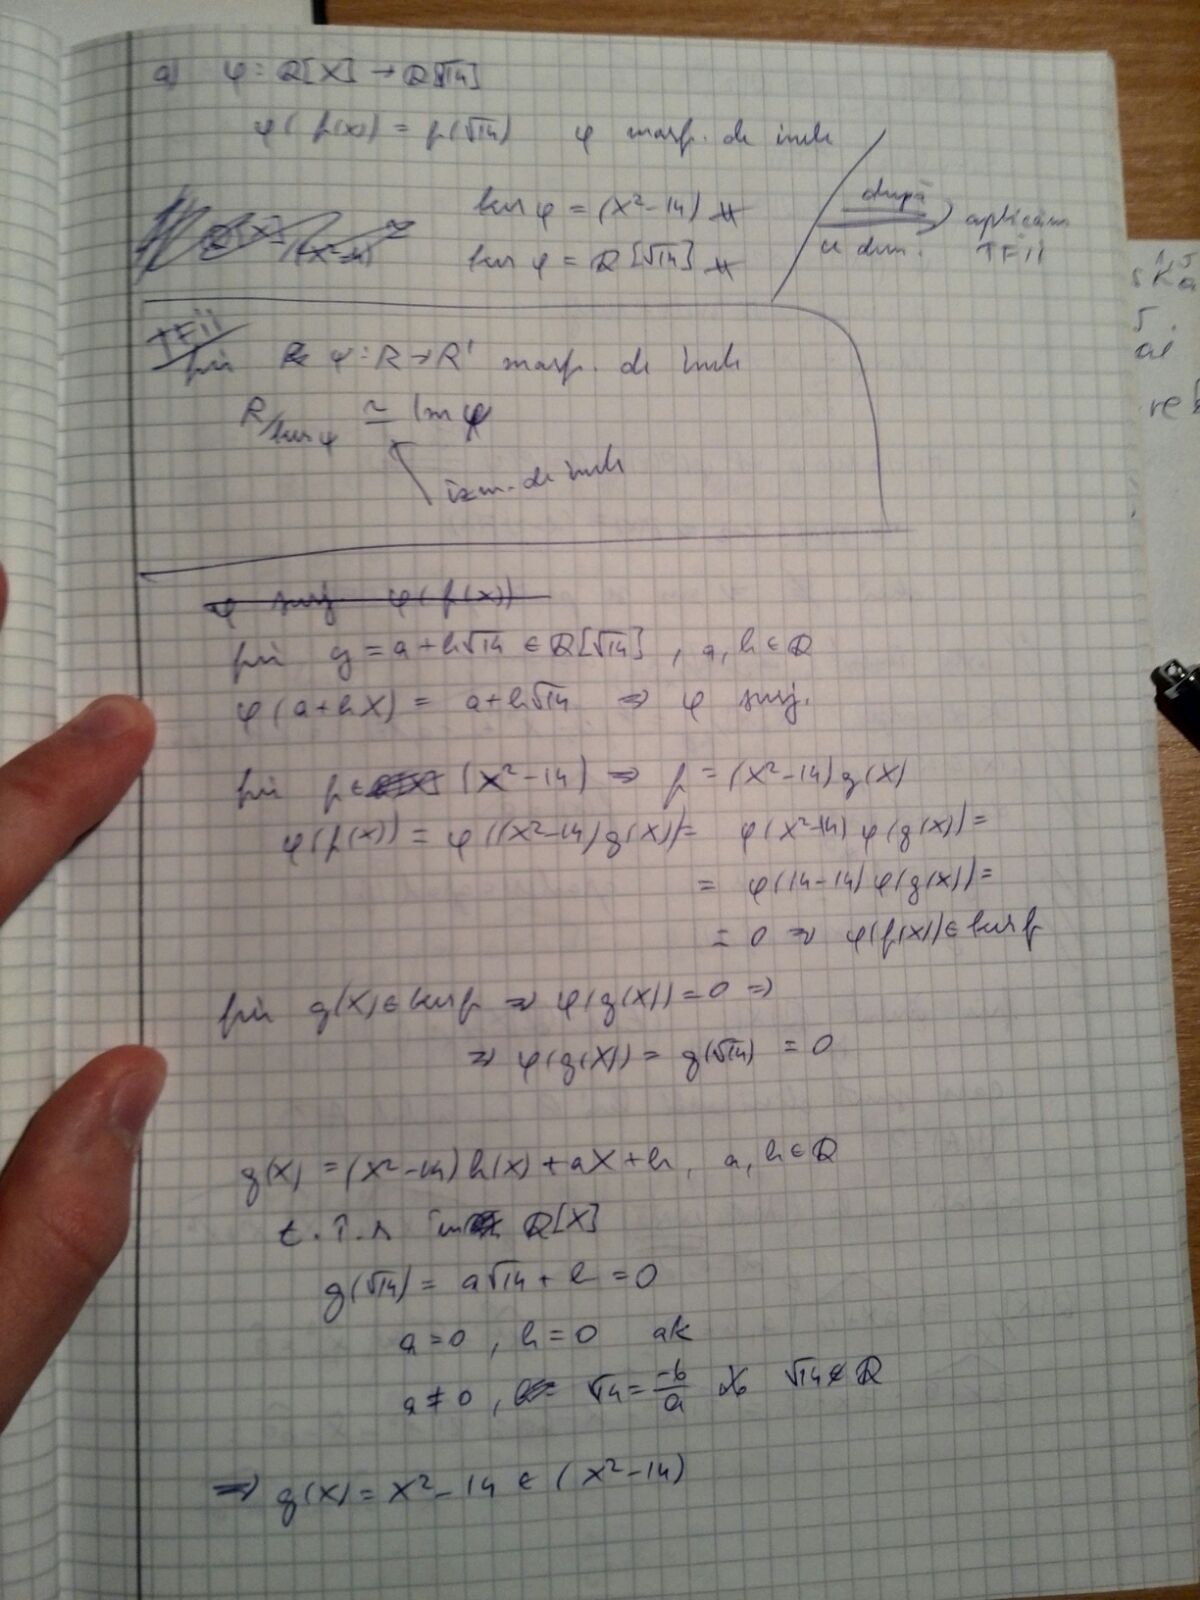 a) φ: Q[X] → Q[√14]
φ(f(x)) = f(√14) φ morf. de inele
ker φ = (X²-14) #
ker φ = Q[√14] #
după ce dem. aplicăm TFII
TFII
fie φ: R → R' morf. de inele
R/ker φ ≃ Im φ
izm. de inele
φ surj. φ(f(x))
fie g = a+b√14 ∈ Q[√14], a, b ∈ Q
φ(a+bX) = a+b√14 ⇒ φ surj.
fie f ∈ (X²-14) ⇒ f = (X²-14) g(X)
φ(f(X)) = φ((X²-14) g(X)) = φ(X²-14) φ(g(X)) =
= φ(14-14) φ(g(X)) =
= 0 ⇒ φ(f(X)) ∈ ker f
fie g(X) ∈ ker f ⇒ φ(g(X)) = 0 ⇒
⇒ φ(g(X)) = g(√14) = 0
g(X) = (X²-14) h(X) + aX + b, a, b ∈ Q
t.î.r în Q[X]
g(√14) = a√14 + b = 0
a = 0, b = 0 ok
a ≠ 0, √14 = -b/a √14 ∉ Q
⇒ g(X) = X²-14 ∈ (X²-14)